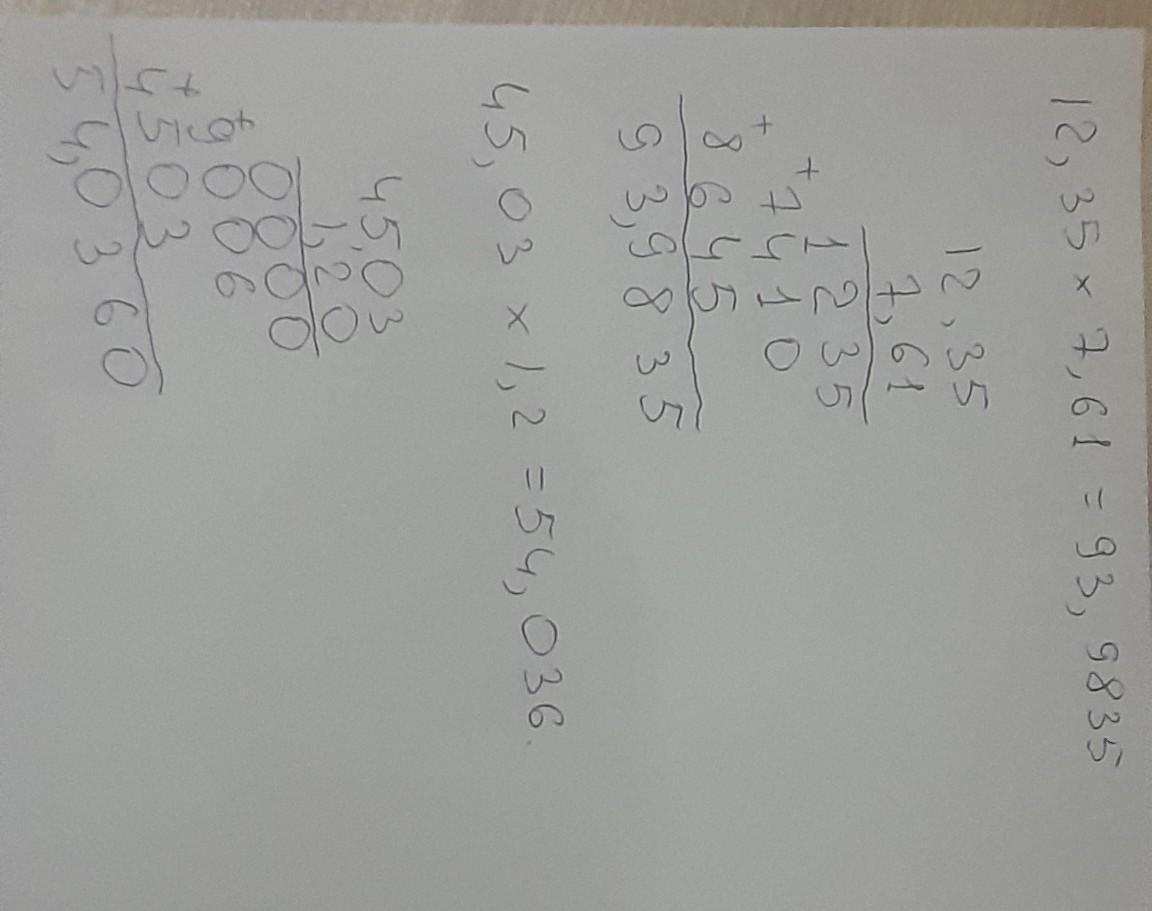 12,35 × 7,61 = 93,9835
12,35
7,61
1235
+ 7410
+ 8645
93,9835
45,03 × 1,2 = 54,036.
45,03
1,20
0000
+ 9006
+ 4503
54,0360